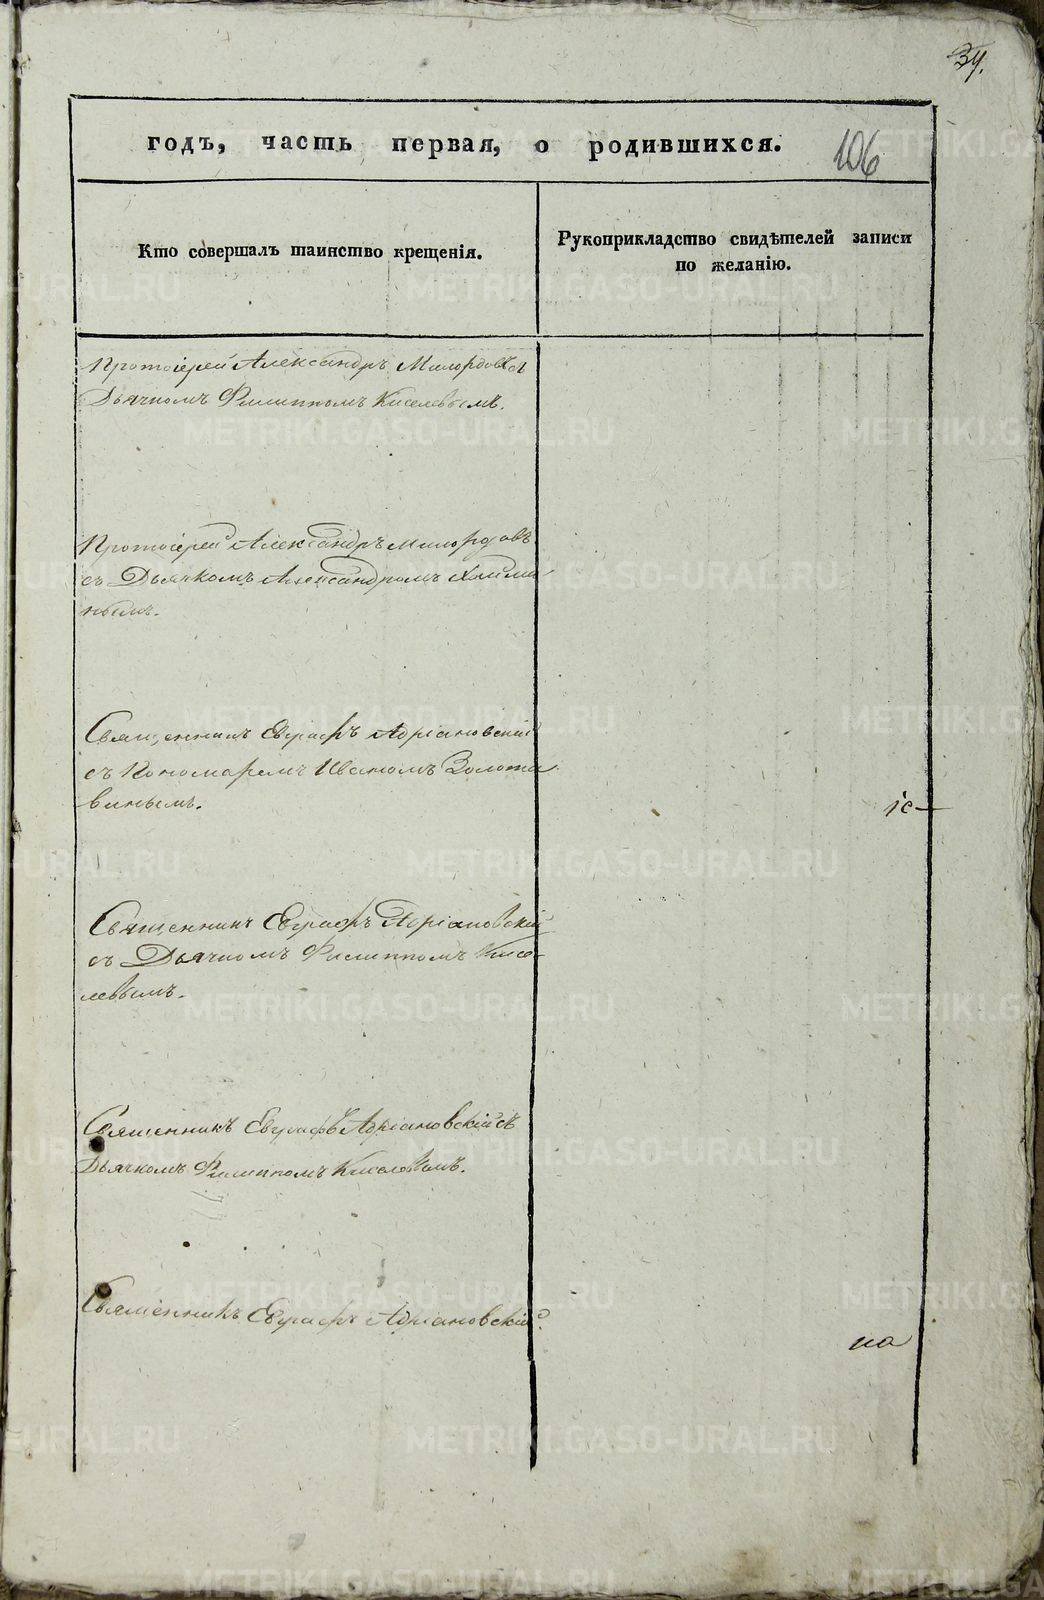 34.
годъ, часть первая, о родившихся.
106
Кто совершалъ таинство крещенія.
Рукоприкладство свидѣтелей записи
по желанію.
Протоіерей Александръ Милордовъ съ
Дьячкомъ Филиппомъ Киселевымъ.
Протоіерей Александръ Милордовъ
съ Дьячкомъ Александромъ
нымъ.
Священникъ Евграфъ Адріановскій
съ Пономаремъ Иваномъ Золота
винымъ.
Священникъ Евграфъ Адріановскій
съ Дьячкомъ Филиппомъ Кисе-
левымъ.
Священникъ Евграфъ Адріановскій съ
Дьячкомъ Филиппомъ Киселевымъ.
Священникъ Евграфъ Адріановскій.
на
METRIKI.GASO-URAL.RU